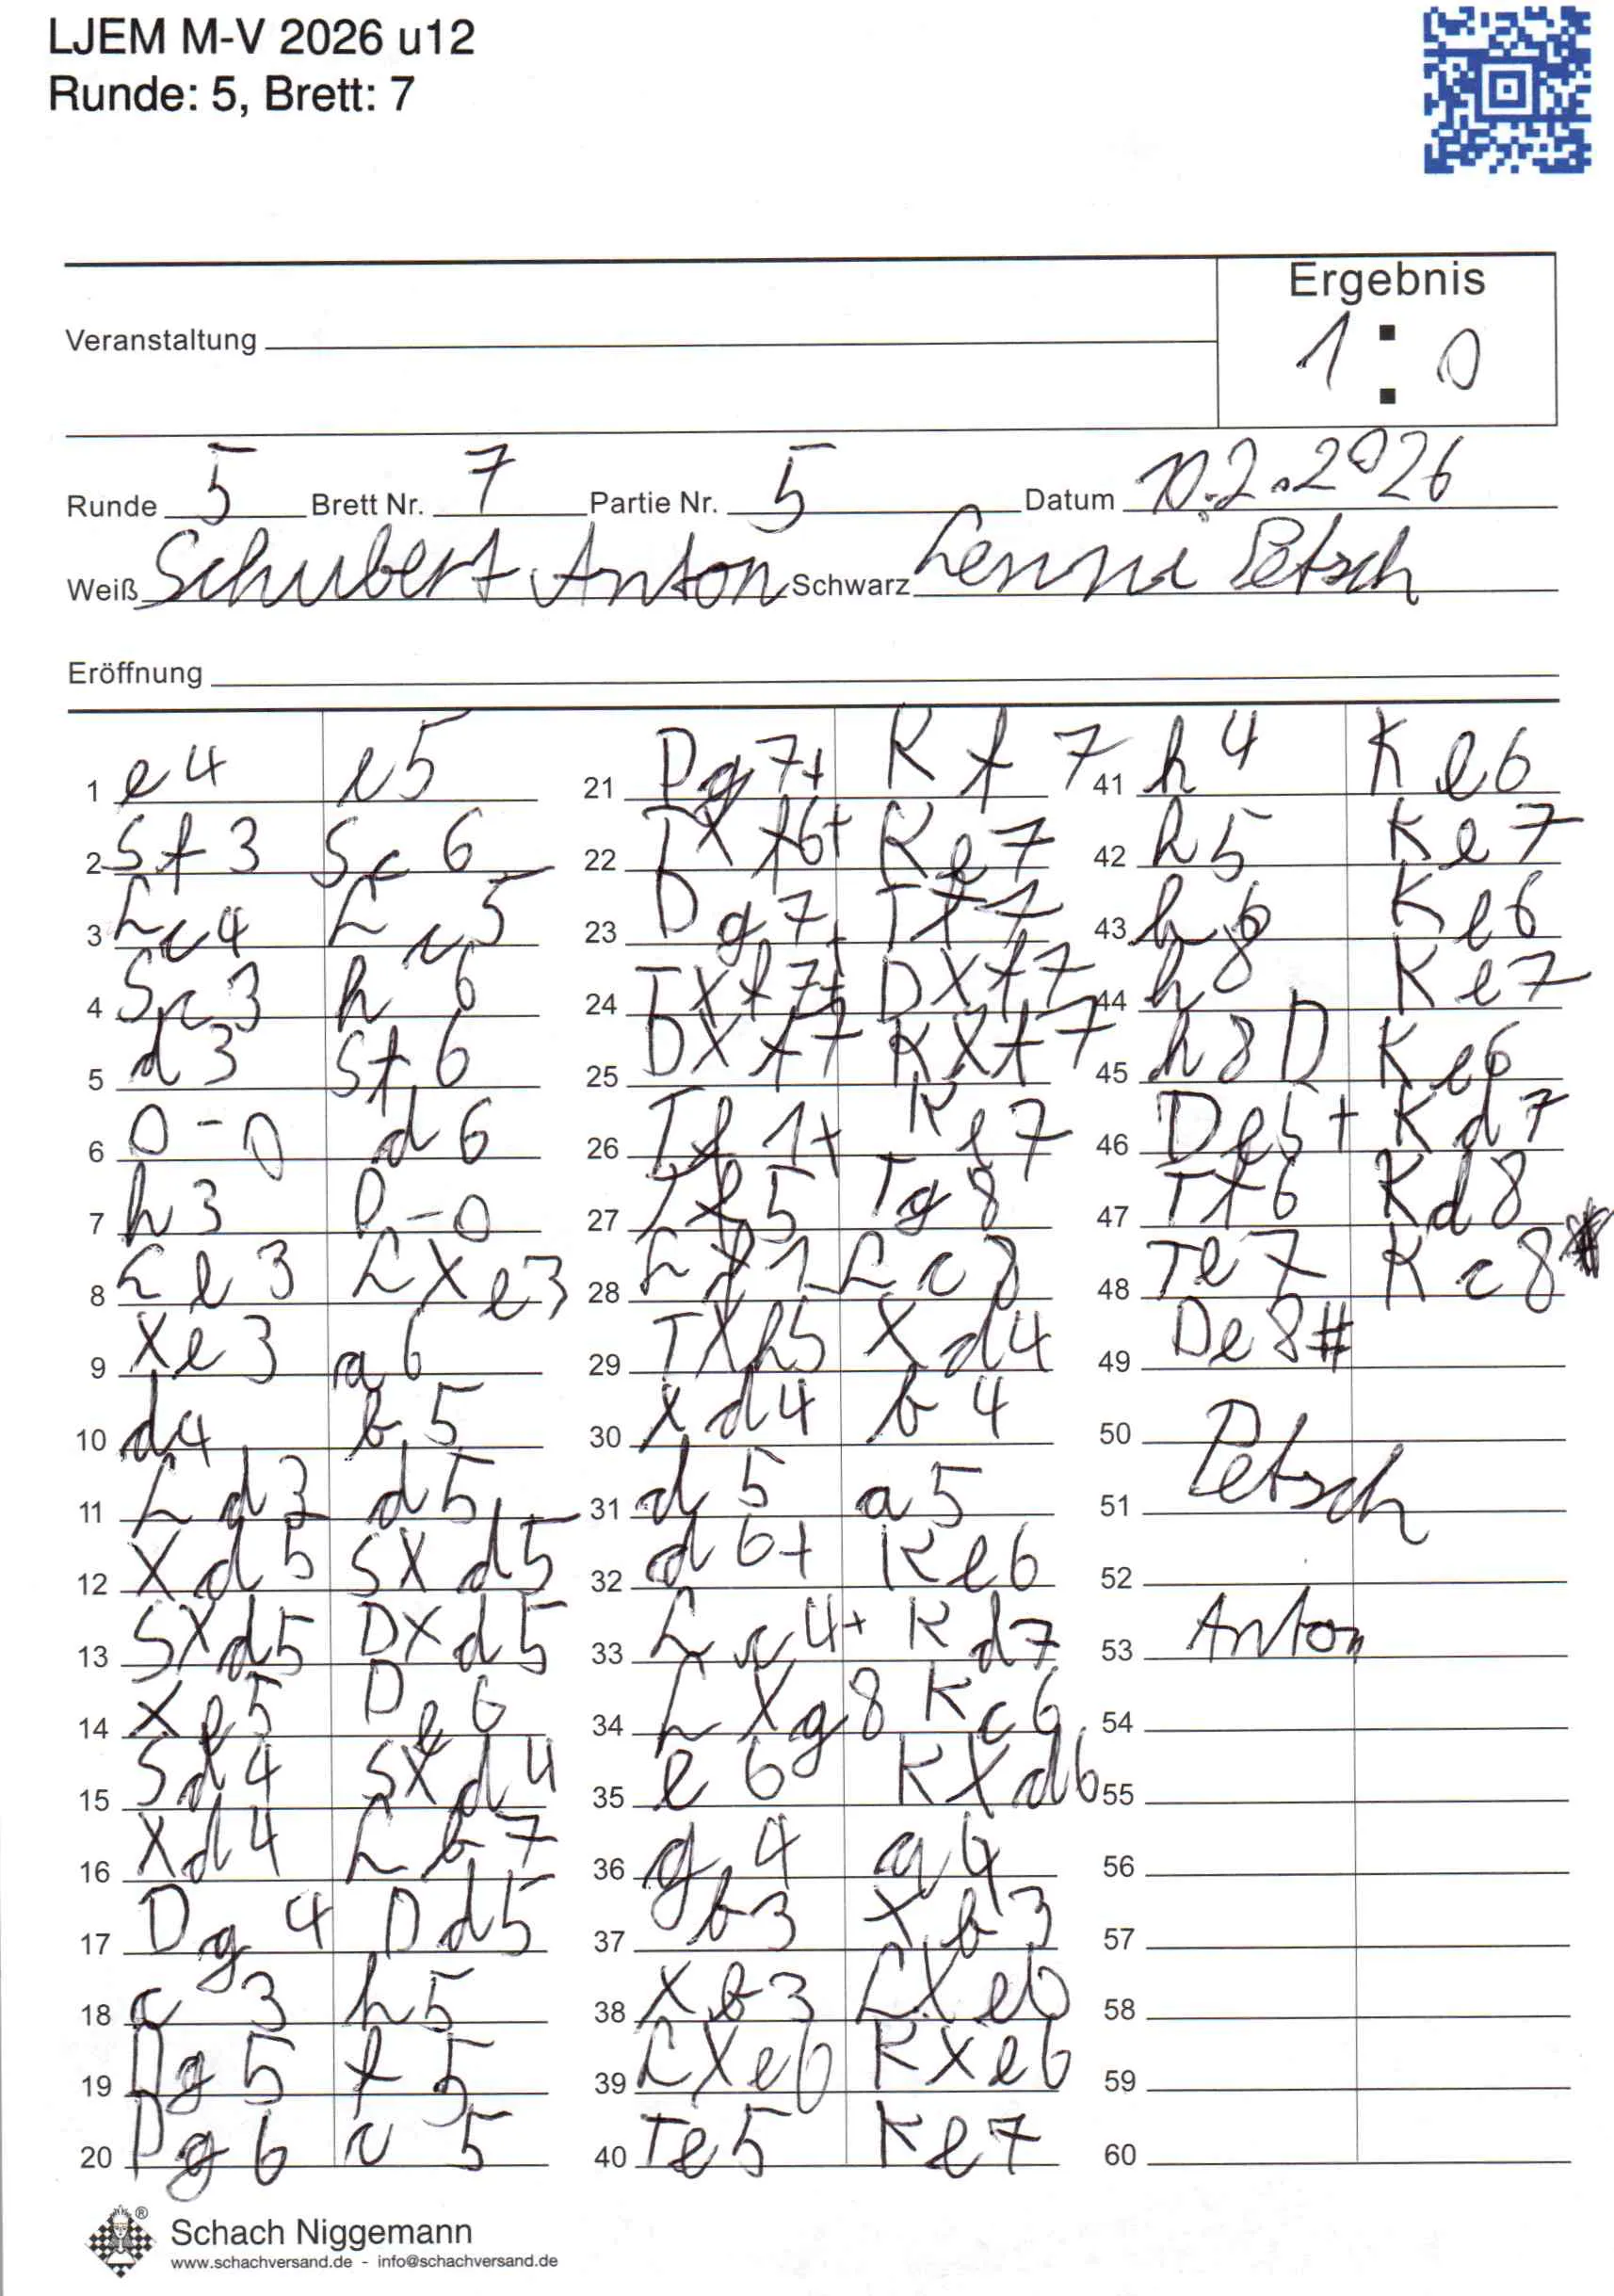 LJEM M-V 2026 u12
Runde: 5, Brett: 7
Ergebnis
Veranstaltung
1 : 0
Runde 5 Brett Nr. 7 Partie Nr. 5 Datum 10.2.2026
Weiß Schubert Anton Schwarz Lenni Petsch
Eröffnung
1 e4 e5
2 Sf3 Sc6
3 Lc4 Lc5
4 Sc3 h6
5 d3 Sf6
6 0-0 d6
7 h3 0-0
8 Le3 LXe3
9 Xe3 a6
10 d4 b5
11 Ld3 d5
12 Xd5 SXd5
13 SXd5 DXd5
14 Xe5 De6
15 Sd4 SXd4
16 Xd4 Lb7
17 Dg4 Dd5
18 c3 h5
19 Dg5 f5
20 Dg6 c5
21 Dg7+ Kf7
22 Xf6+ Ke7
23 Dg7+ Tf7
24 TXf7+ DXf7
25 DXf7 KXf7
26 Tf1+ Ke7
27 Tf5 Tg8
28 Lf1 Lc8
29 TXh5 Xd4
30 Xd4 b4
31 d5 a5
32 d6+ Ke6
33 Lc4+ Kd7
34 LXg8 Kc6
35 e6 KXd6
36 g4 a4
37 b3 Xb3
38 Xb3 LXe6
39 LXe6 KXe6
40 Te5 Ke7
41 h4 Ke6
42 h5 Ke7
43 h6 Ke6
44 h8 Ke7
45 h8D Ke6
46 De5+ Kd7
47 Tf6 Kd8
48 Te7 Kc8
49 De8#
50
51 Petsch
52
53 Anton
54
55
56
57
58
59
60
Schach Niggemann
www.schachversand.de - info@schachversand.de